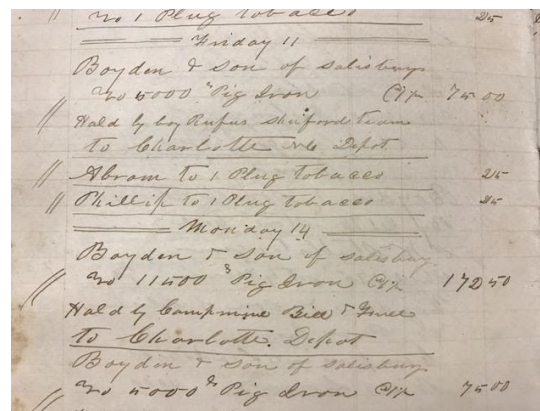 To 1 Plug tobacco 25
Friday 11
Boyden & Son of Salisbury
To 5000 lb Pig Iron @1½ 75 00
Hald by boy Rufus Shuford Team
to Charlotte NC Depot
Abram to 1 Plug tobacco 25
Phillip to 1 Plug tobacco 25
Monday 14
Boyden & Son of Salisbury
To 11500 lb Pig Iron @1½ 172 50
Hald by Campmine Bill &
to Charlotte. Depot
Boyden & Son of Salisbury
To 5000 lb Pig Iron @1½ 75 00